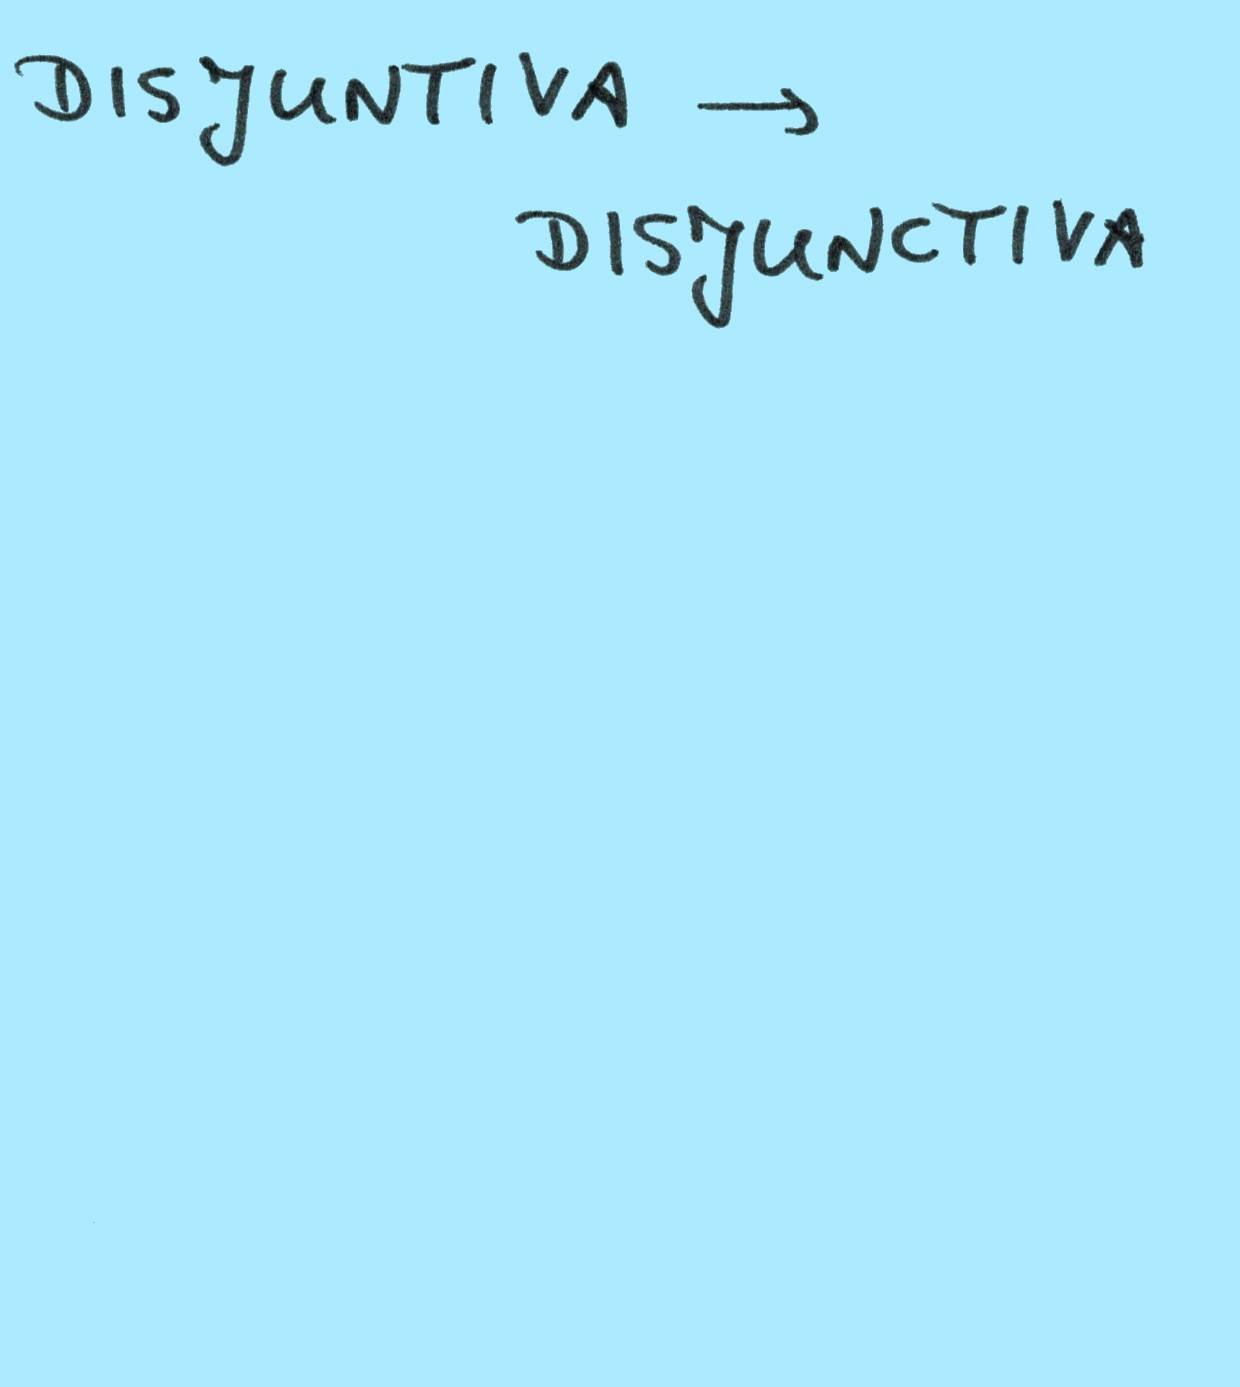 DISJUNTIVA →
DISJUNCTIVA